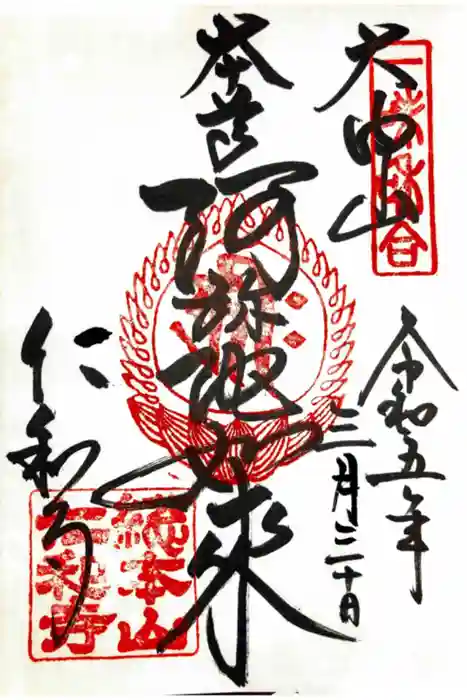 大内山
令和五年
三月三十日
本尊
阿弥陀如来
仁和寺
総本山
仁和寺